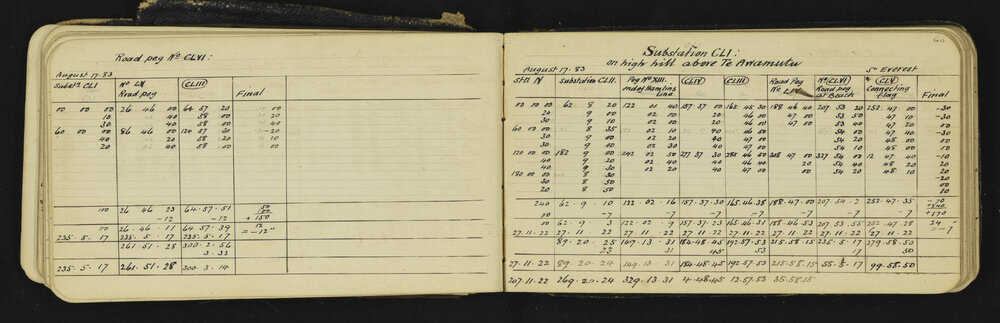 Road peg No CLVI:
August 17·83
Substn CLI No LN Road peg CLIII Final
00 00 00 26 46 00 64 57 20
10 40 58 00
30 40 58 00
60 00 00 86 46 00 124 57 31
40 20 58 10
20 40 58 00
26 46 23 64·57·51 50
-12 -12 +150
26·46·11 64·57·39 12
235·5·17 235·5·17 235·5·17 = -12"
261·51·28 300·2·56
3·33
235·5·17 261·51·28 300·3·14
Substation CLI:
on high hill above Te Awamutu
August 17·83 5" Everest
Stn IV Substation CLII. Peg No XIII. end of Hamlins line CLIV CLIII Road Peg No LN No CLVI Road peg at Beach CLV Connecting flag Final
00 00 00 62 8 20 122 01 40 157 37 00 165 45 30 188 46 40 207 53 20 252 47 00 -30
20 9 00 02 00 20 46 00 47 00 53 50 47 10 -30
30 9 10 02 00 20 46 00 47 00 53 40 47 20 00
60 00 00 8 35 02 10 40 46 00 54 00 47 40
20 9 00 02 00 40 47 00 54 20 48 00
30 9 00 02 30 40 47 00 54 10 48 00
120 00 00 182 9 00 242 02 50 277 37 30 285 46 50 308 47 00 327 54 00 12 47 40 -10
40 9 20 02 40 40 46 40 20 54 40 48 20 20
180 00 00 8 30
30 8 50
20 8 50
240 62·9·10 122·02·16 157·37·30 165·46·38 188·47·00 207·54·2 252·47·35 -70
00 -7 -7 -7 -7 -7 -7 -7 +170
00 62·9·3 122·02·9 157·37·23 165·46·31 188·46·53 207·53·55 252·47·28
27·11·22 27·11·22 27·11·22 27·11·22 27·11·22 27·11·22 27·11·22 27·11·22 = -7"
89·20·25 149·13·31 184·48·45 192·57·53 215·58·15 235·5·17 279·58·50
27·11·22 89·20·24 149·13·31 184·48·45 192·57·53 215·58·15 55·5·17 99·58·50
207·11·22 269·20·24 329·13·31 4·48·45 12·57·53 35·58·15